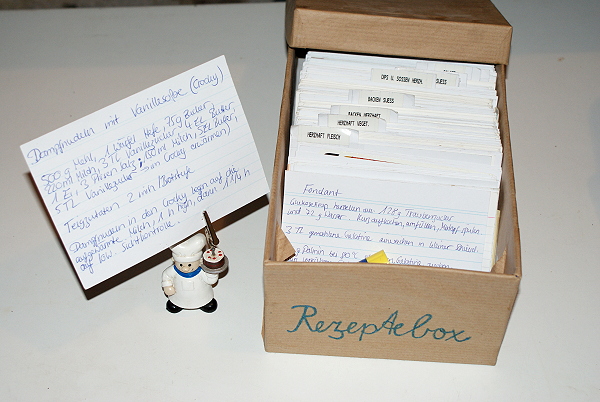 Dampfnudeln mit Vanillesoße (Crocky)
500 g Mehl, 1 Würfel Hefe, 75 g Zucker,
220 ml Milch, 3 TL Vanillezucker, 4 EL Zucker,
1 Ei, 3 Prisen Salz; 100 ml Milch, 5 EL Zucker,
5 TL Vanillezucker 5 min (Crocky erwärmen)
Teigzutaten 2 min / Brotstufe
Dampfnudeln in den Crocky legen auf die
aufgewärmte Milch, 1 h high, dann 1 1/4 h
auf low Sichtkontrolle
DIPS U. SOSSEN HERZH. SUESS
BACKEN SUESS
BACKEN HERZHAFT
HERZHAFT VEGET.
HERZHAFT FLEISCH
Fondant
Glukosesirup herstellen aus 178 g Traubenzucker
und 22 g Wasser. Kurz aufkochen, umfüllen,
3 TL gemahlene Gelatine einweichen in
Palmin bei 80°C Gelatine
Rezeptebox